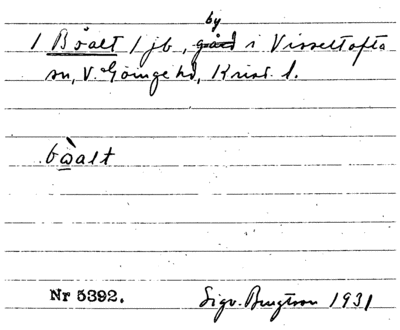 by
1 Böalt 1 jb, gård i Visseltofta
sn, V. Göinge hd, Krist. l.
bὼalt
Nr 5392.
Sigv. Bengtson 1931